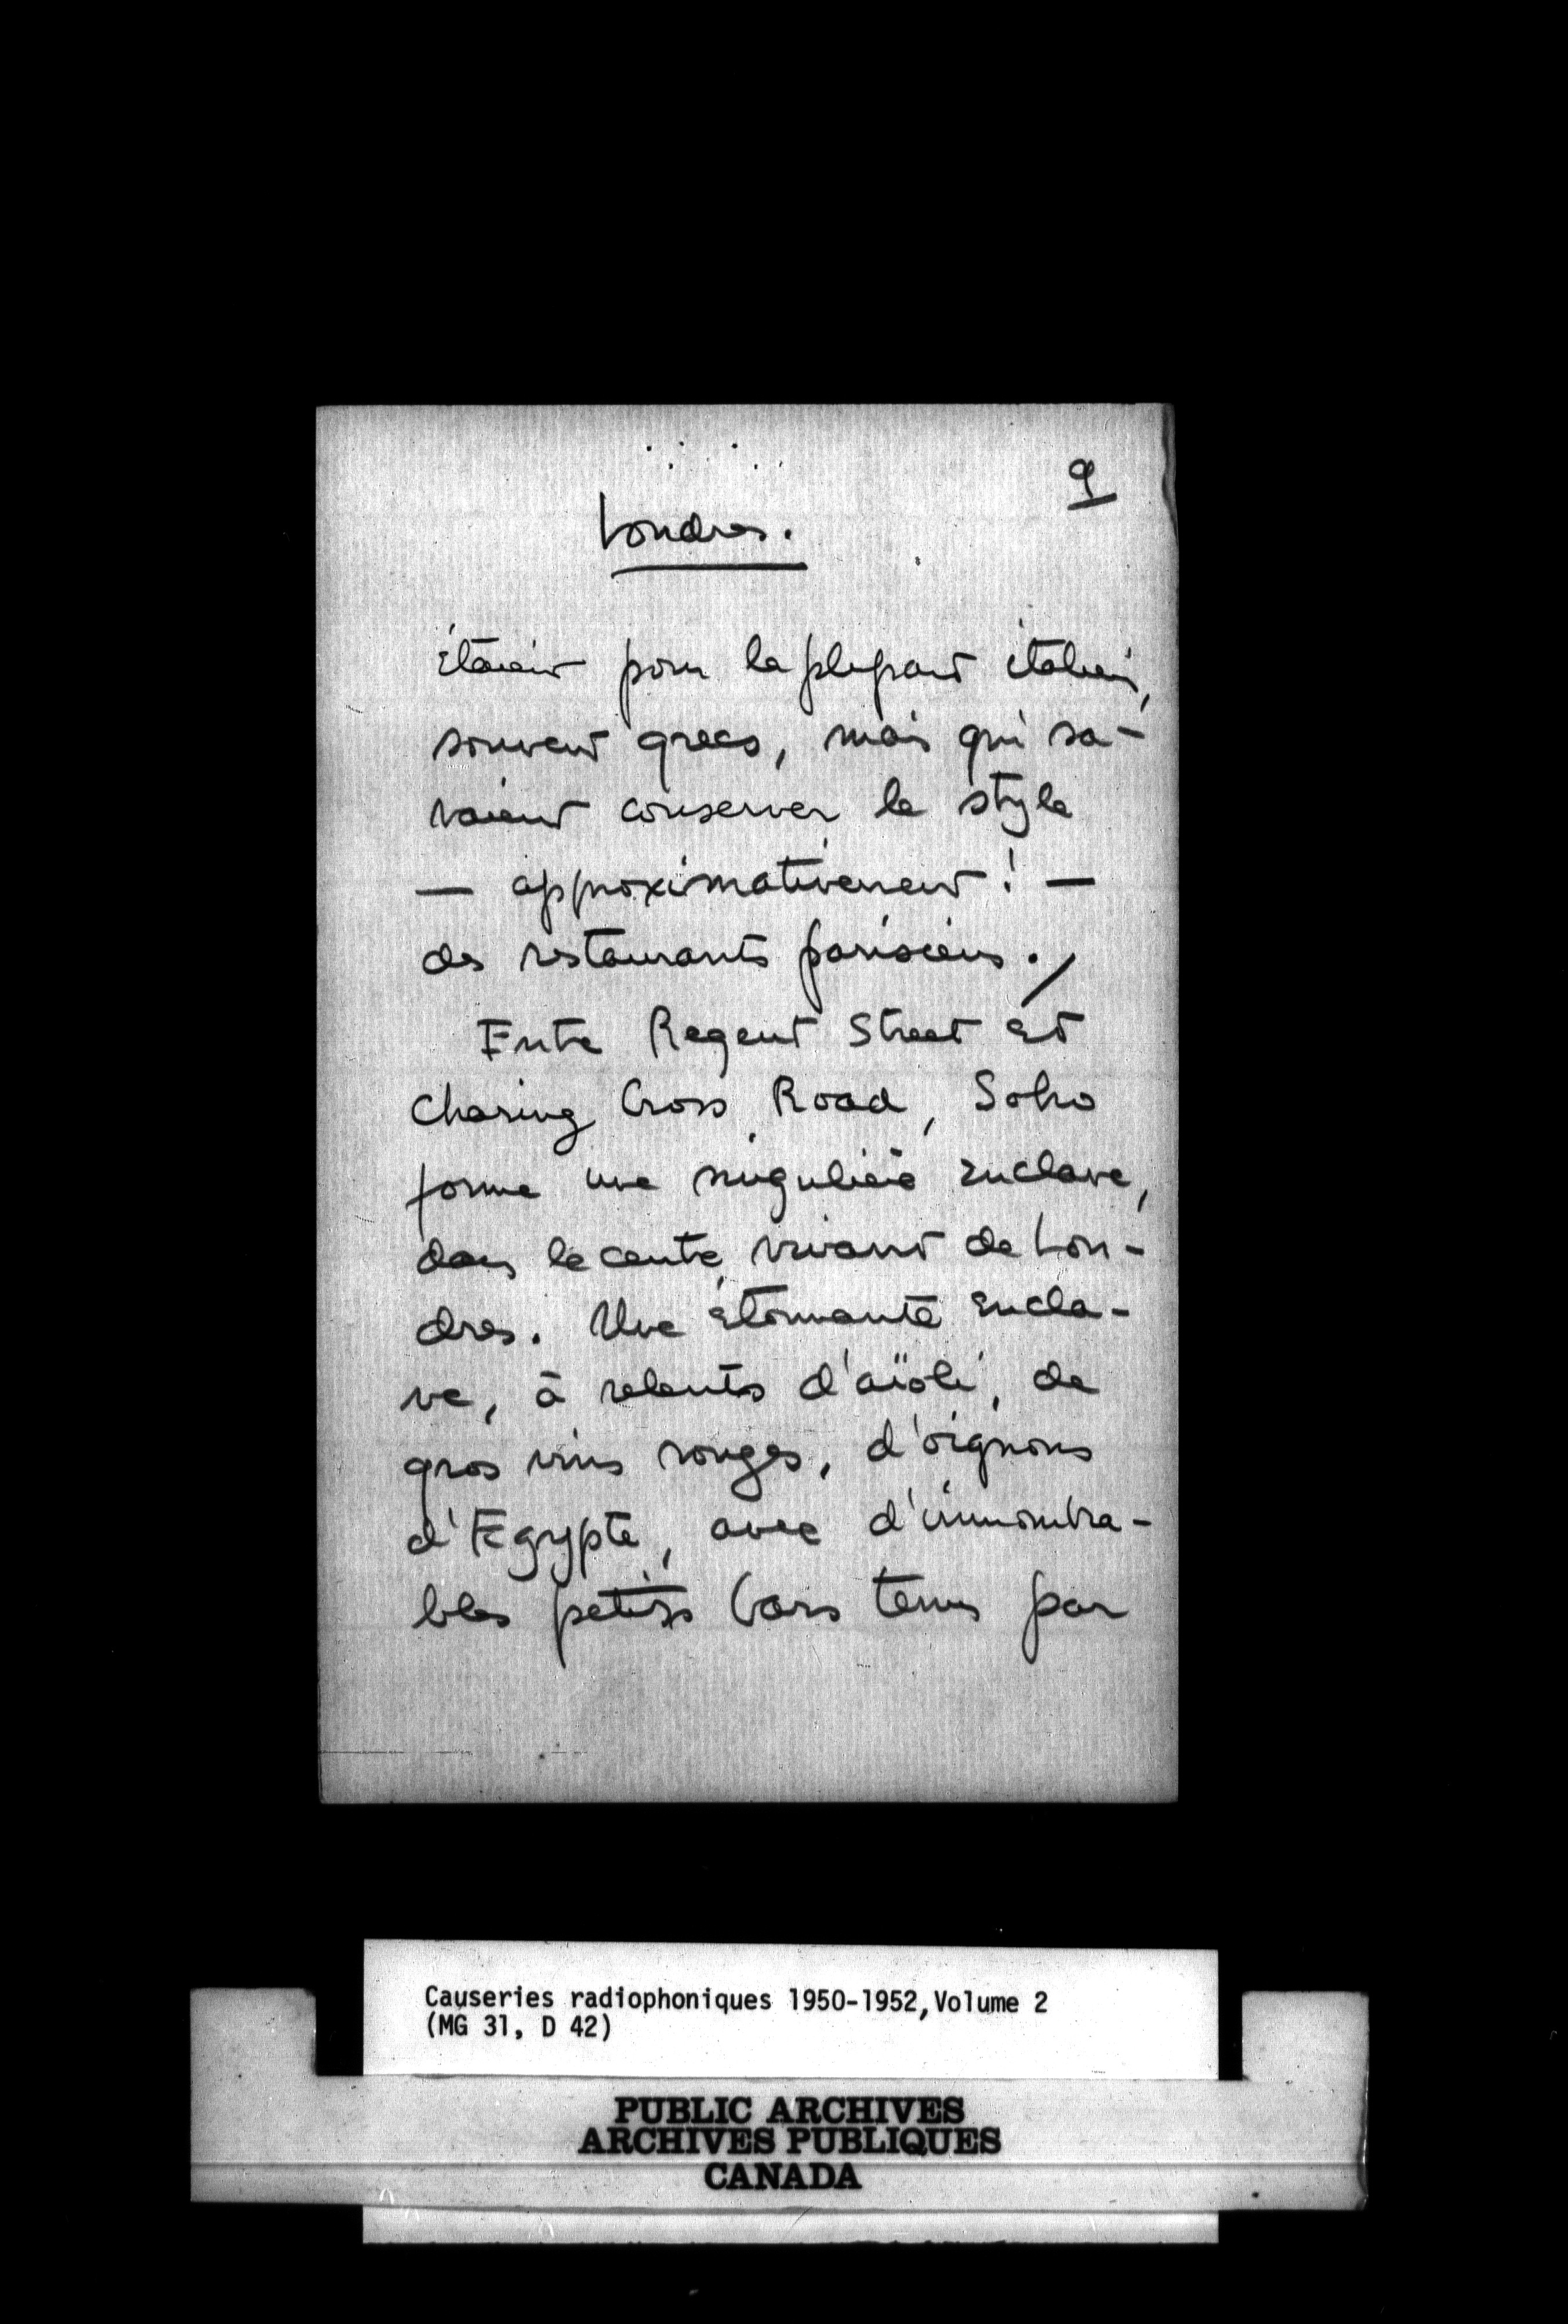 9
Londres.
étaient pour la plupart italiens,
souvent grecs, mais qui sa-
vaient conserver le style
— approximativement ! —
des restaurants parisiens./
Entre Regent Street et
Charing Cross Road, Soho
forme une singulière enclave,
dans le centre vivant de Lon-
dres. Une étonnante encla-
ve, à relents d'aïoli, de
gros vins rouges, d'oignons
d'Egypte, avec d'innombra-
bles petits bars tenus par
Causeries radiophoniques 1950-1952, Volume 2
(MG 31, D 42)
PUBLIC ARCHIVES
ARCHIVES PUBLIQUES
CANADA